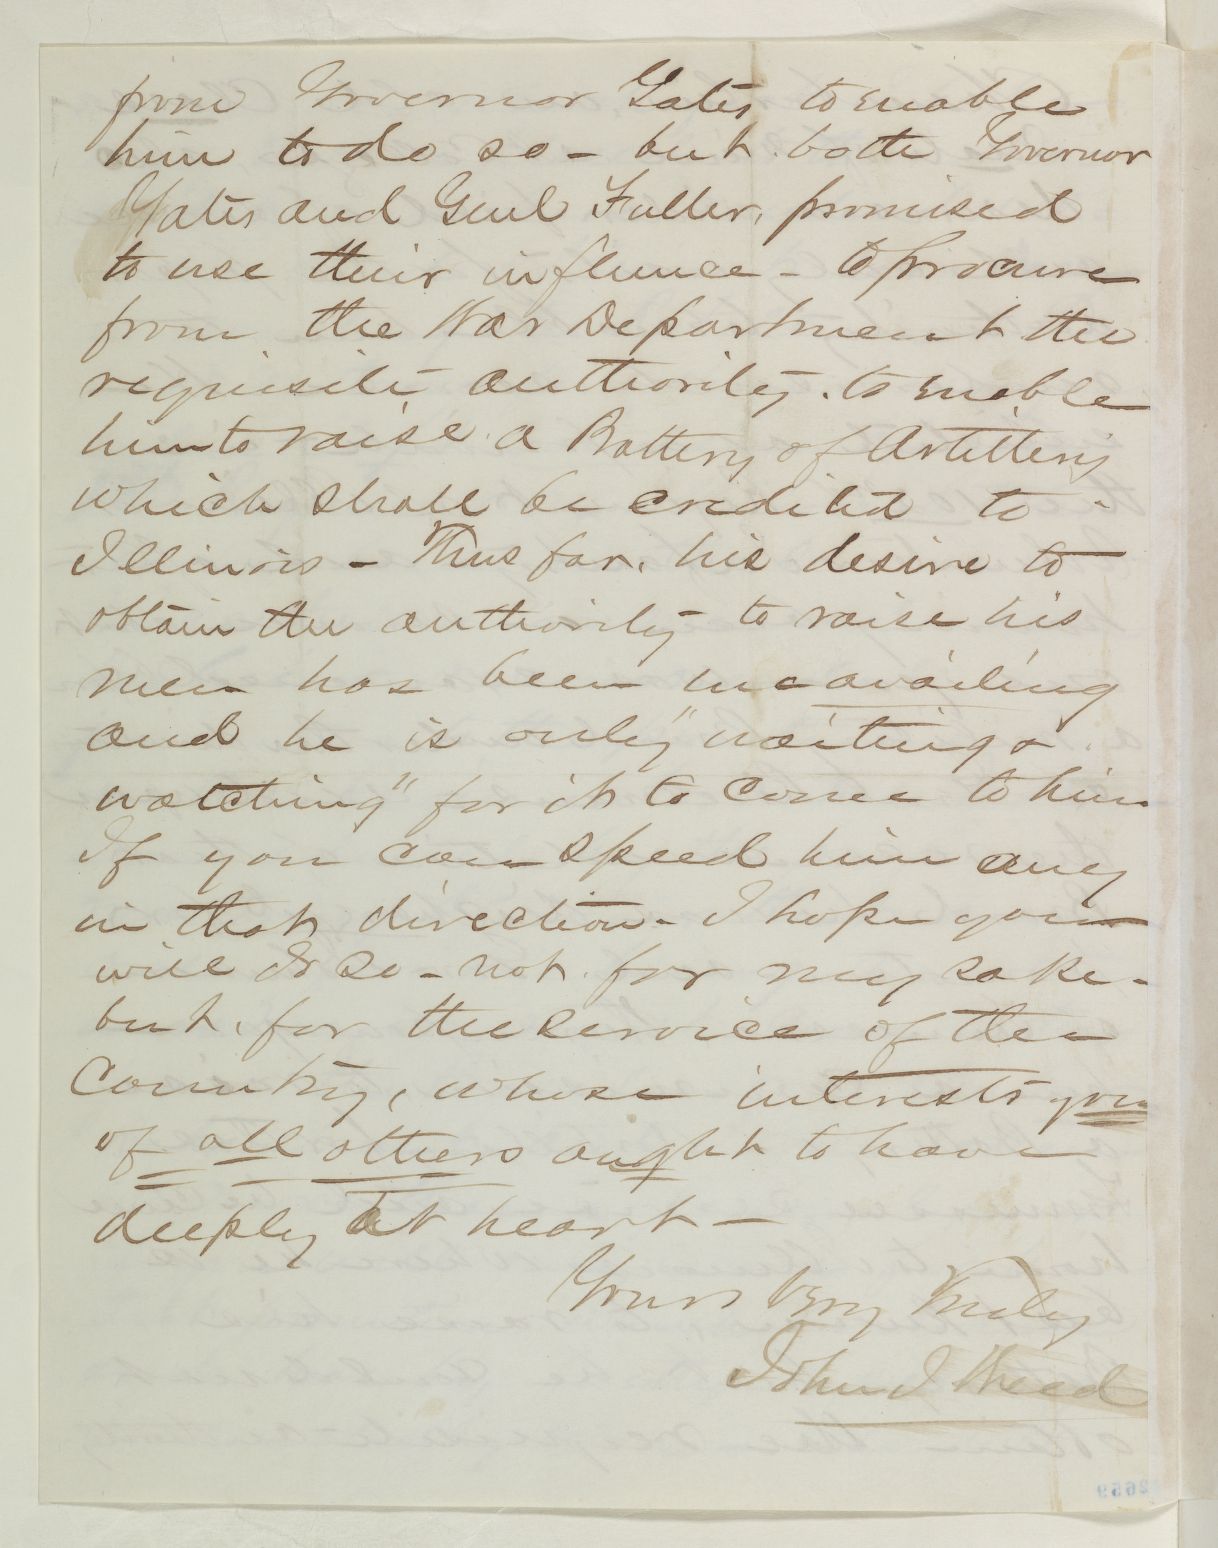 from Governor Yates to enable
him to do so - but both Governor
Yates and Genl Fuller, promised
to use their influence - to procure
from the War Department the
requisite authority to enable
him to raise a Battery of Artillery
which shall be credited to
Illinois - Thus far, his desire to
obtain the authority to raise his
men has been unavailing
and he is only "waiting &
watching" for it to come to him
If you can speed him any
in that direction - I hope you
will do so - not for my sake -
but, for the service of the
Country, whose interests you
of all others ought to have
deeply at heart -
Yours Very Truly
John J Speed